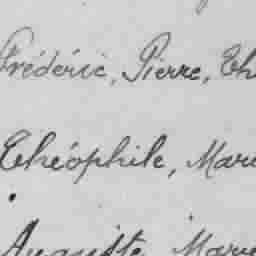 Frédéric, Pierre, Th
Théophile, Mari
Auguste, Marie